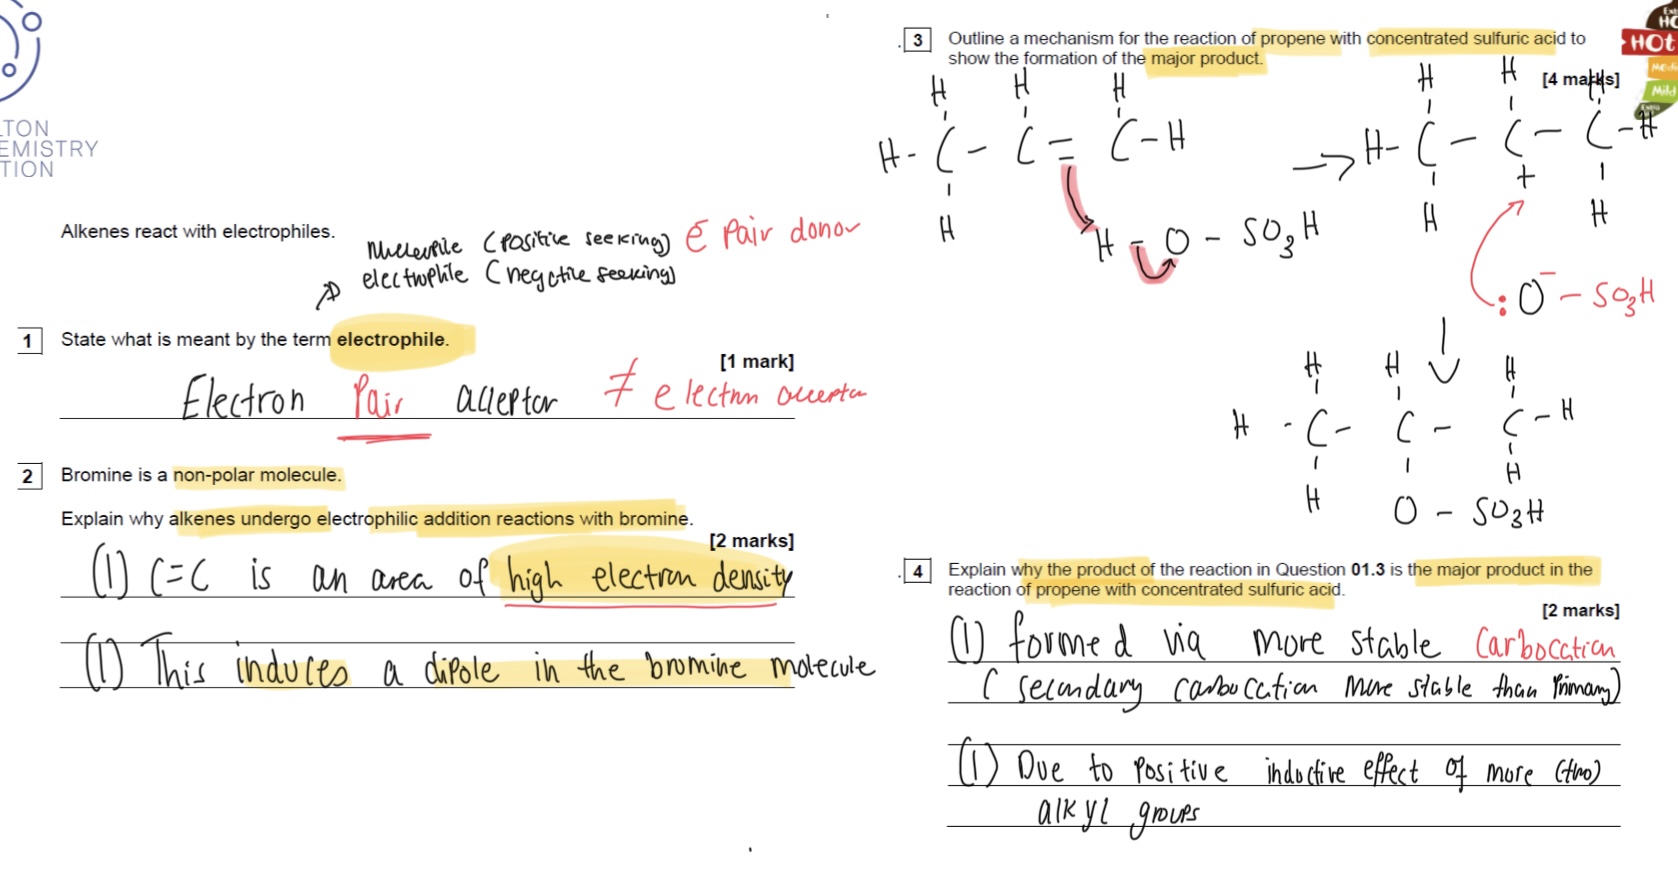 LTON
EMISTRY
TION
Alkenes react with electrophiles.
(positive seeking) E Pair donor
electrophile (negative seeking)
1 State what is meant by the term electrophile.
[1 mark]
Electron Pair acceptor ≠ electron acceptor
2 Bromine is a non-polar molecule.
Explain why alkenes undergo electrophilic addition reactions with bromine.
[2 marks]
(1) C=C is an area of high electron density
(1) This induces a dipole in the bromine molecule
3 Outline a mechanism for the reaction of propene with concentrated sulfuric acid to
show the formation of the major product.
[4 marks]
HOt
Mild
H H H
H - C - C = C - H
H
H - O - SO3H
→
H H H
H - C - C - C - H
+
H H
: O⁻ - SO3H
↓
H H H
H - C - C - C - H
H H
O - SO3H
4 Explain why the product of the reaction in Question 01.3 is the major product in the
reaction of propene with concentrated sulfuric acid.
[2 marks]
(1) formed via more stable carbocation
(secondary carbocation more stable than Primary)
(1) Due to Positive inductive effect of more (two)
alkyl groups